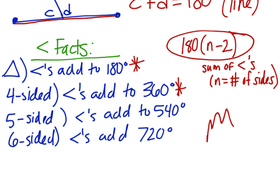 c d
c + d = 180 (line)
< Facts:
△) <'s add to 180° *
4-sided) <'s add to 360° *
5-sided) <'s add to 540°
6-sided) <'s add 720°
180(n-2)
sum of <'s
(n=# of sides)